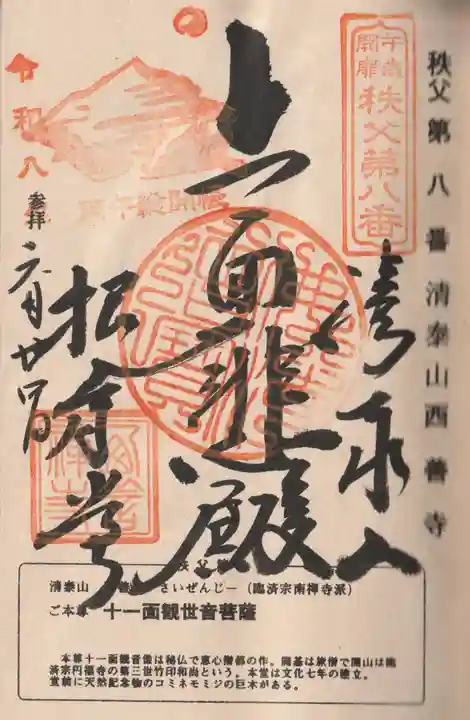 秩父第八番清泰山西善寺
午歳開扉
秩父第八番
清泰山
十一面
悲殿
令和八
参拝
六月廿
秩父
清泰山 さいぜんじー（臨済宗南禅寺派）
ご本尊 十一面観世音菩薩
本尊十一面観音像は秘仏で恵心僧都の作。開基は旅僧で開山は臨
済宗円福寺の第三世竹印和尚という。本堂は文化七年の建立。
堂前に天然記念物のコミネモミジの巨木がある。